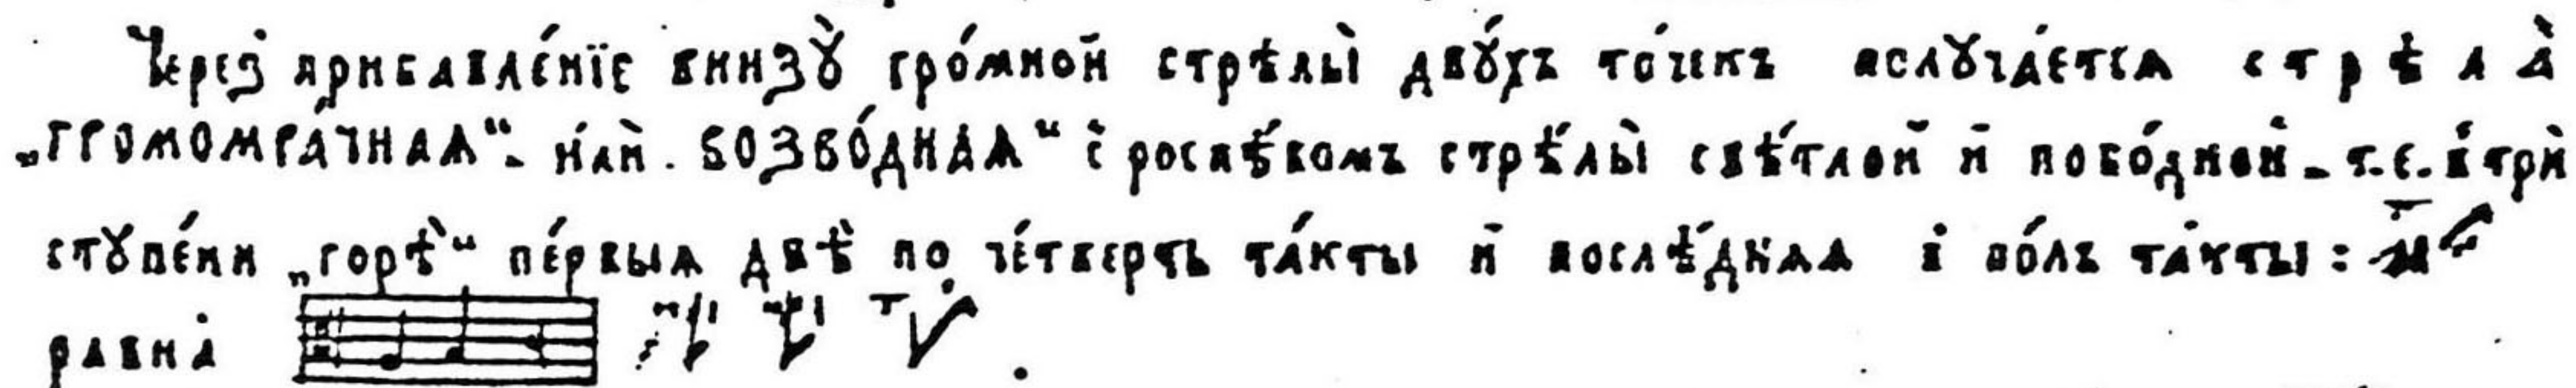 Чере́з прибавле́нїе внизꙋ̀ гро́мной стрѣлы̀ двꙋ́хъ то́чекъ полꙋча́етсѧ стрѣла̀
„ГРОМОМРА́ЧНАѦ“ - и҆лѝ „ВОЗВО́ДНАѦ“ с̾ роспѣ́вомъ стрѣ́лы̀ свѣ́тлой и҆ пово́дной - т.є. в̾ трѝ
стꙋпе́ни „горѣ̀“ пе́рвыѧ двѣ̀ по че́тверть та́кты и҆ послѣ́днѧѧ в̾ по́лъ та́кты:
равна̀